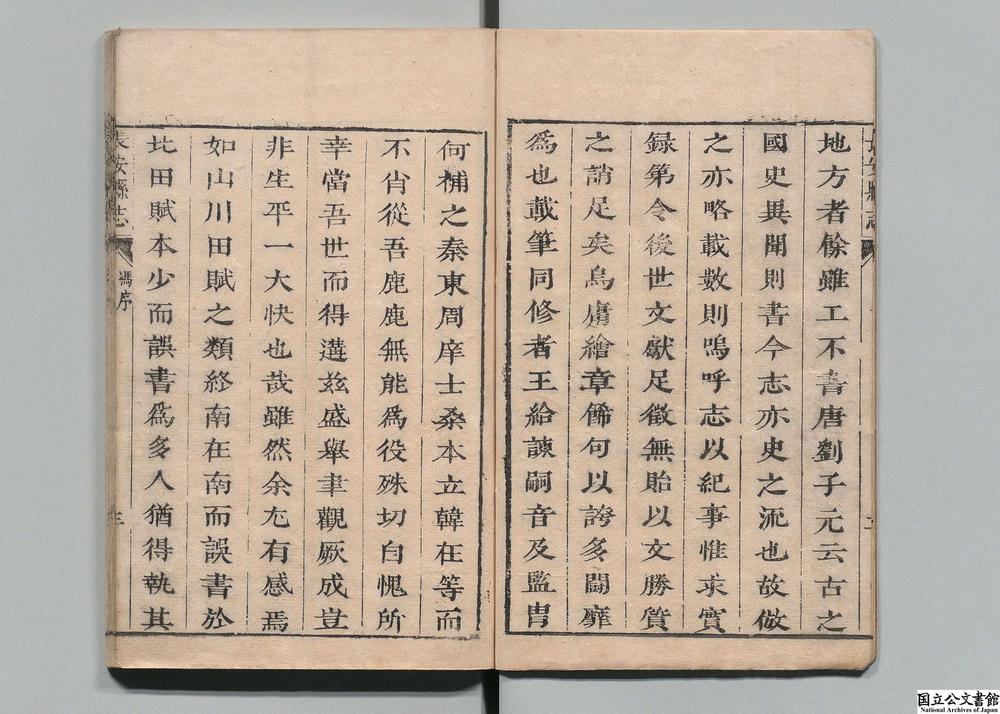 地方者餘雖工不書唐劉子元云古之
國史異聞則書今志亦史之流也故倣
之亦略載數則嗚呼志以紀事惟求實
録第令後世文獻足徵無貽以文勝質
之誚足矣烏庸繪章俻句以誇多鬪靡
爲也載筆同修者王給諫嗣音及監胄
何補之秦東周庠士桑本立韓在等而
不肖從吾鹿鹿無能爲役殊切自愧所
幸當吾世而得遘兹盛舉聿觀厥成豈
非生平一大快也哉雖然余尤有感焉
如山川田賦之類終南在南而誤書於
北田賦本少而誤書爲多人猶得執其
長安縣志
馮序
三
国立公文書館
National Archives of Japan